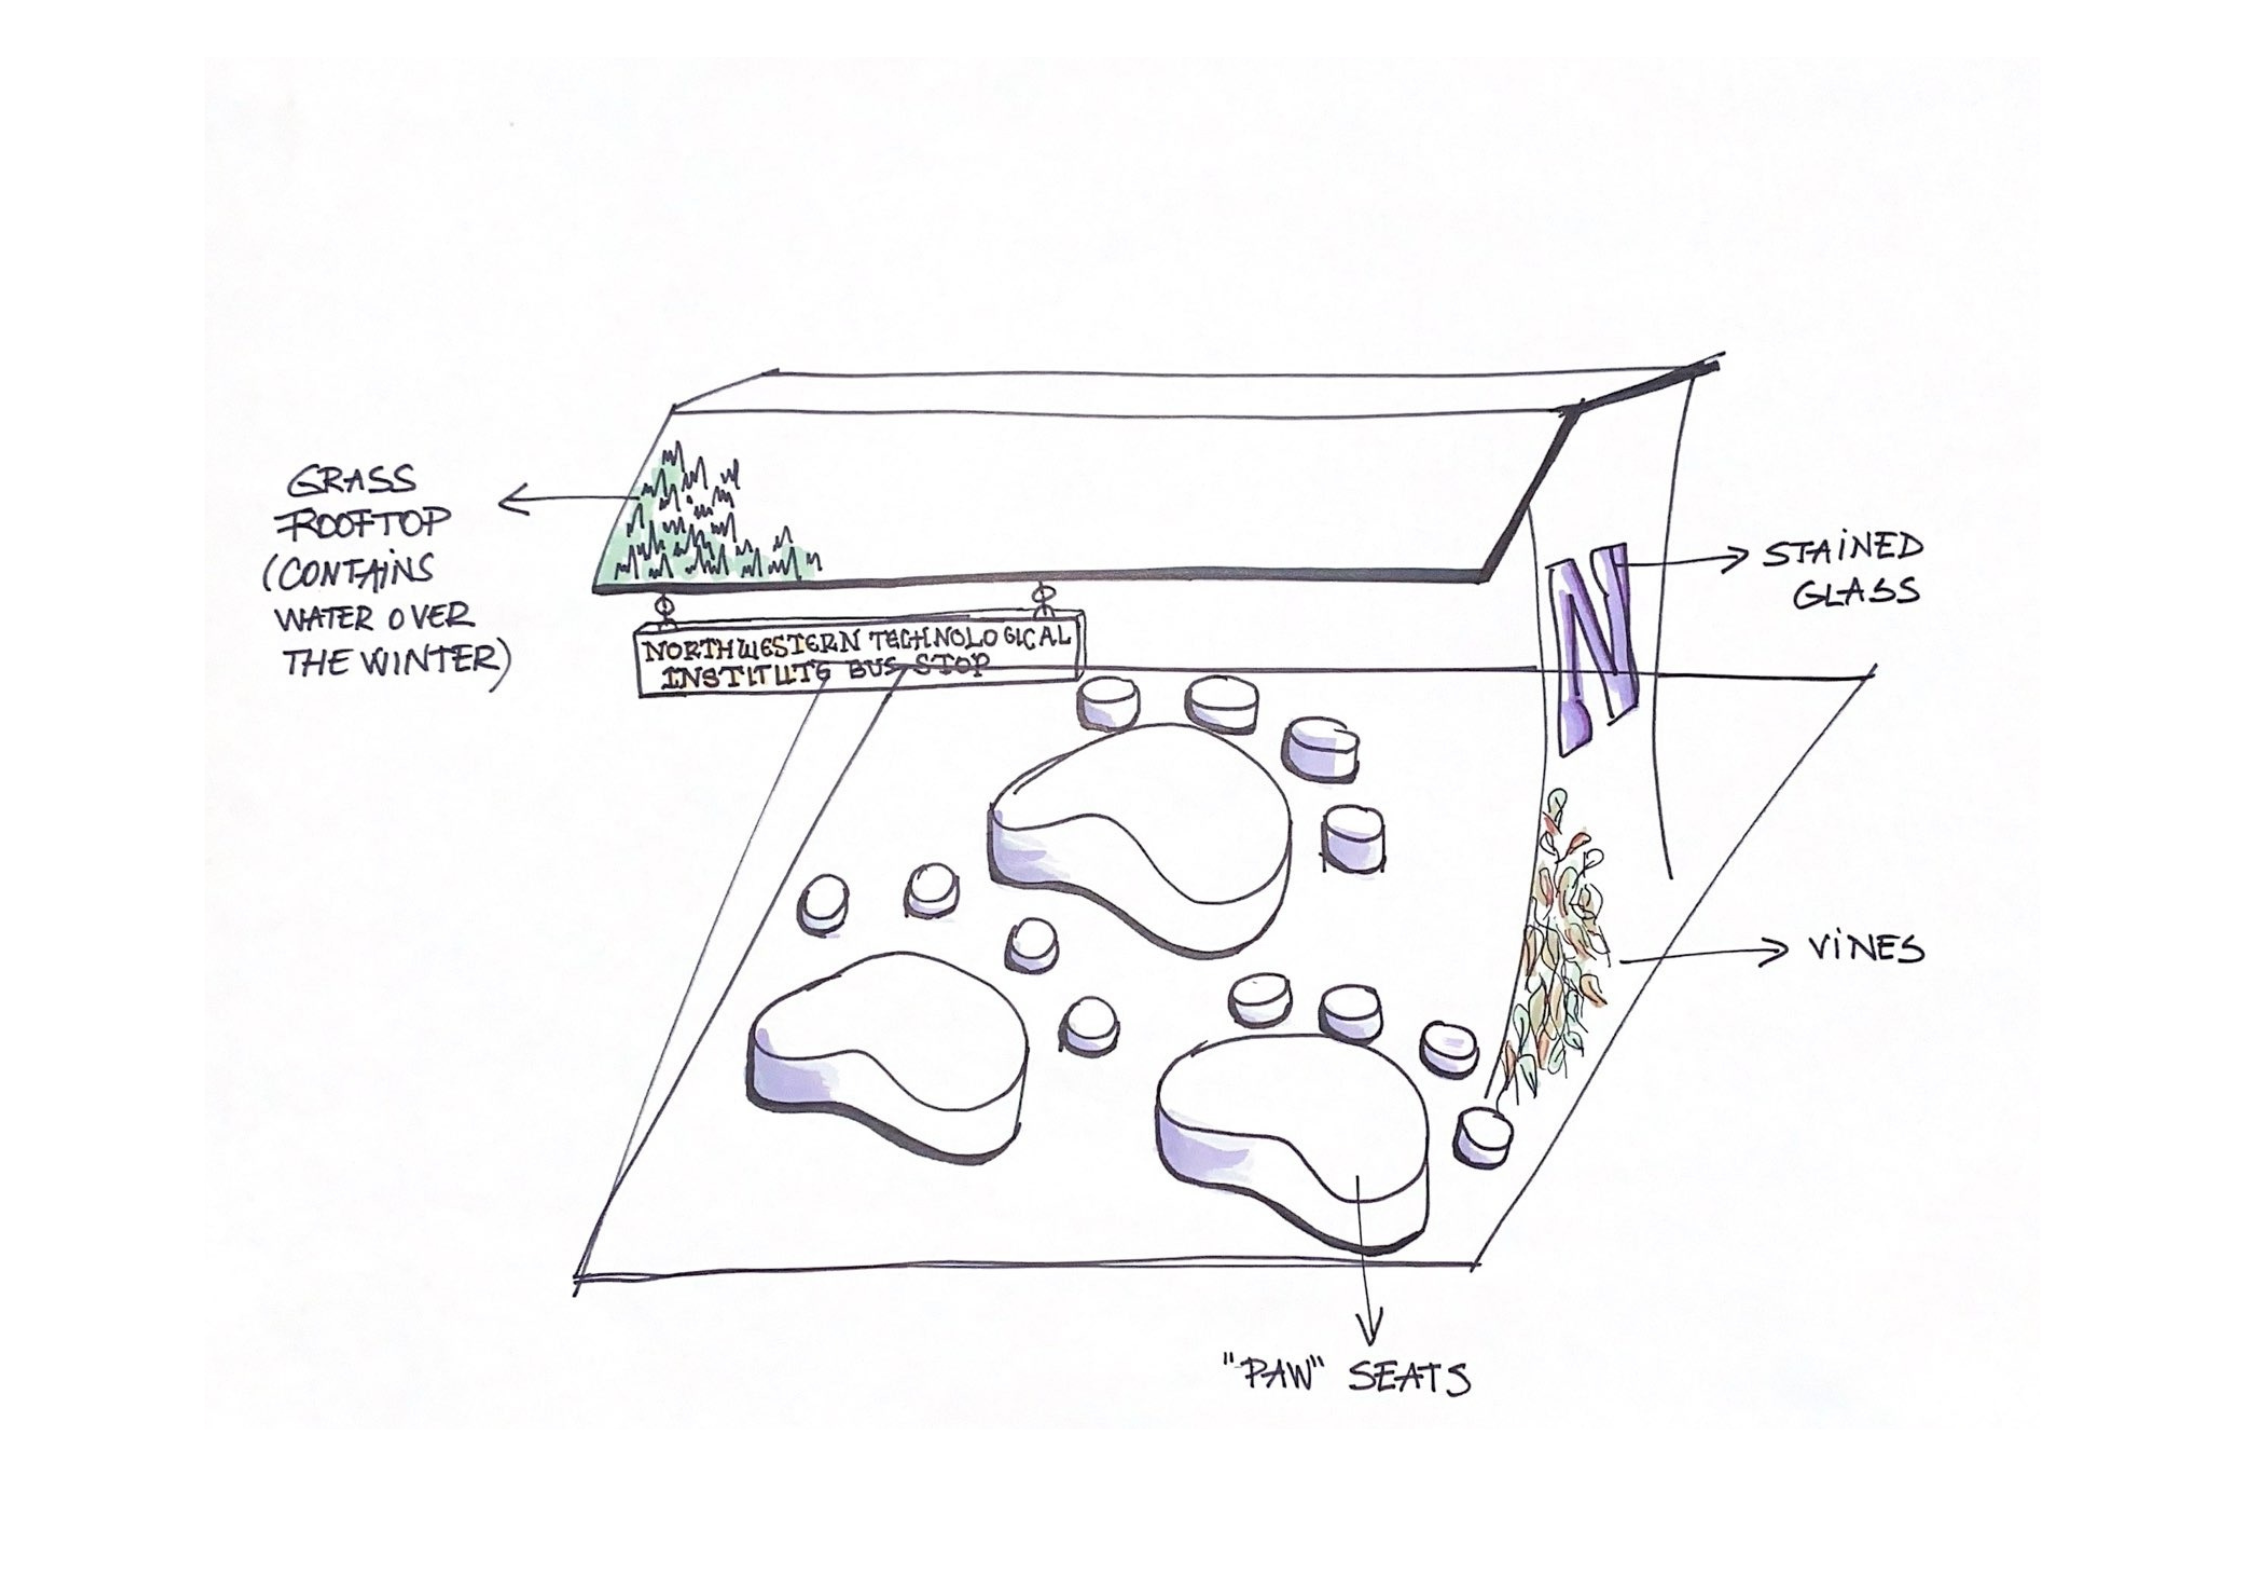 GRASS
ROOFTOP
(CONTAINS
WATER OVER
THE WINTER)
NORTHWESTERN TECHNOLOGICAL
INSTITUTE BUS STOP
N
STAINED
GLASS
VINES
"PAW" SEATS